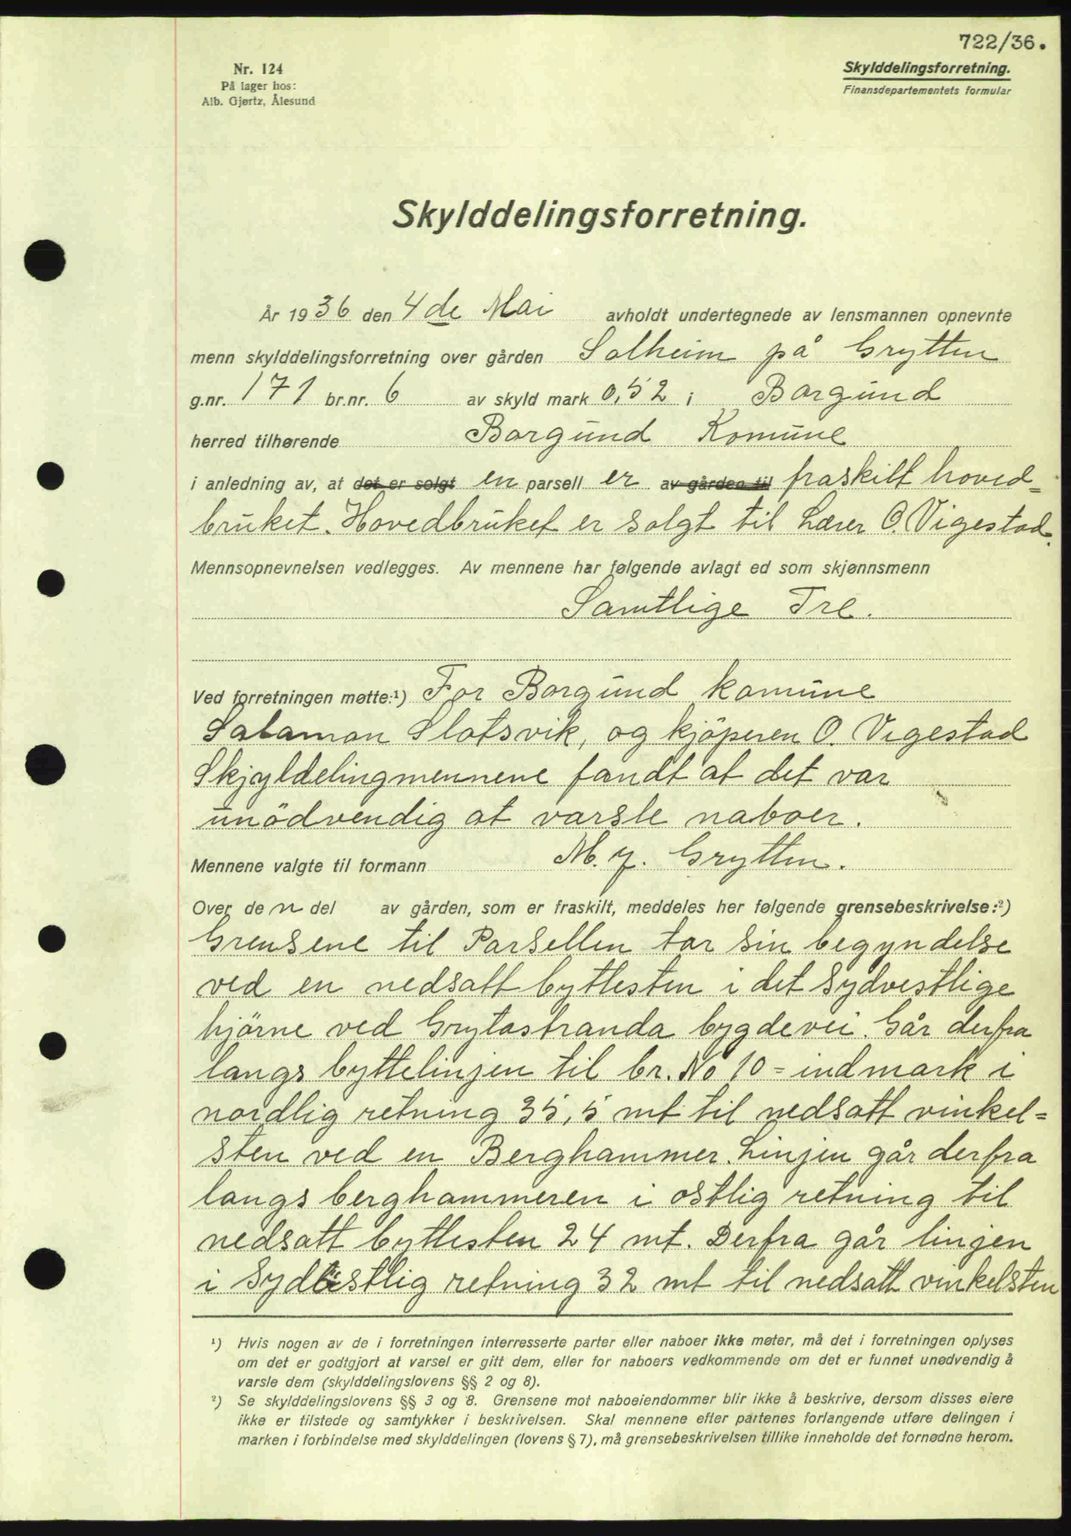 722/36.
Nr. 124
På lager hos:
Alb. Gjørtz, Ålesund
Skylddelingsforretning.
Finansdepartementets formular
Skylddelingsforretning.
År 1936 den 4de Mai avholdt undertegnede av lensmannen opnevnte
menn skylddelingsforretning over gården Solheim på Grytten
g.nr. 171 br.nr. 6 av skyld mark 0,52 i Borgund
herred tilhørende Borgund Komune
i anledning av, at det er solgt en parsell er av gården til fraskilt hoved=
bruket. Hovedbruket er solgt til Lærer O. Vigestad.
Mennsopnevnelsen vedlegges. Av mennene har følgende avlagt ed som skjønnsmenn
Samtlige Tre.
Ved forretningen møtte:¹) For Borgund komune
Salamon Slotsvik, og kjöperen O. Vigestad
Skjyldelingmennene fandt at det var
unödvendig at varsle naboer.
Mennene valgte til formann M. J. Grytten.
Over den del av gården, som er fraskilt, meddeles her følgende grensebeskrivelse:²)
Grensene til Parsellen tar sin begyndelse
ved en nedsatt byttesten i det Sydvestlige
hjörne ved Grytastranda bygdevei. Går derfra
langs byttelinjen til br. No 10 = indmark i
nordlig retning 35,5 mt til nedsatt vinkel=
sten ved en Berghammer. Linjen går derfra
langs berghammeren i ostlig retning til
nedsatt byttesten 24 mt. Derfra går linjen
i Sydöstlig retning 32 mt til nedsatt vinkelsten
¹) Hvis nogen av de i forretningen interresserte parter eller naboer ikke møter, må det i forretningen oplyses
om det er godtgjort at varsel er gitt dem, eller for naboers vedkommende om det er funnet unødvendig å
varsle dem (skylddelingslovens §§ 2 og 8).
²) Se skylddelingslovens §§ 3 og 8. Grensene mot naboeiendommer blir ikke å beskrive, dersom disses eiere
ikke er tilstede og samtykker i beskrivelsen. Skal mennene efter partenes forlangende utføre delingen i
marken i forbindelse med skylddelingen (lovens § 7), må grensebeskrivelsen tillike inneholde det fornødne herom.